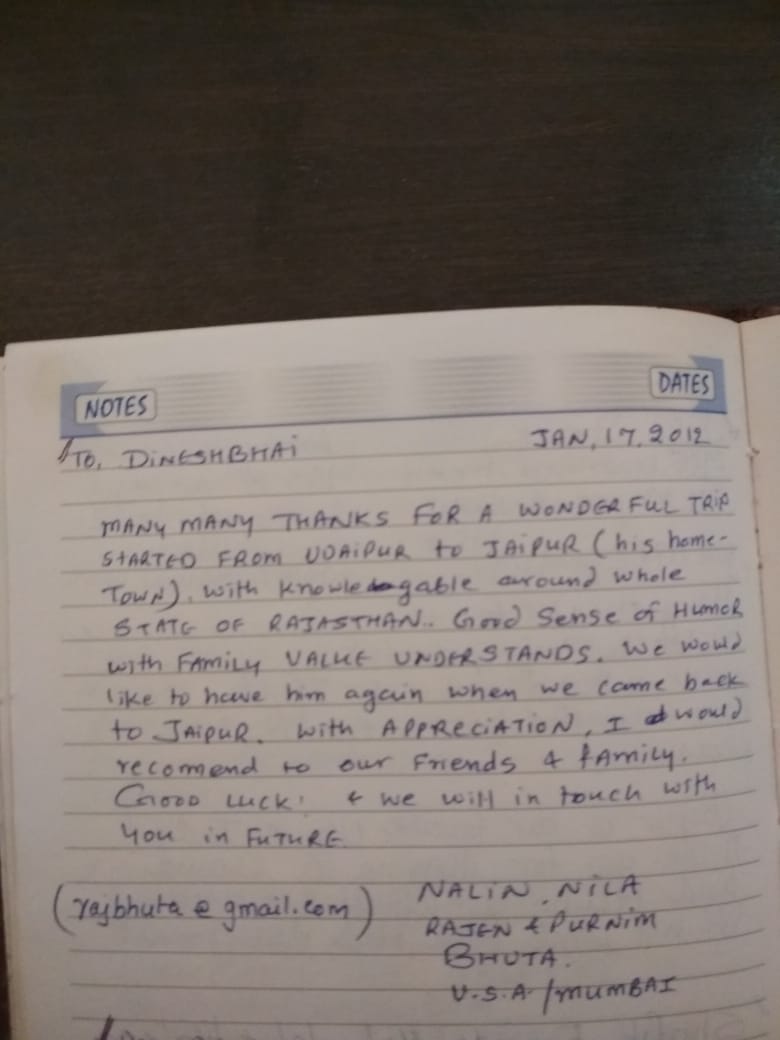 NOTES DATES
TO, DINESHBHAI JAN, 17, 2012
MANY MANY THANKS FOR A WONDERFUL TRIP
STARTED FROM UDAIPUR to JAIPUR (his home-
TOWN). with knowledgable around whole
STATE OF RAJASTHAN. Good Sense of HUMOR
with FAMILY VALUE UNDERSTANDS. We would
like to have him again when we came back
to JAIPUR. with APPRECIATION, I would
recomend to our Friends & family.
GOOD LUCK! & we will in touch with
you in FUTURE
(rajbhuta@gmail.com) NALIN, NILA
RAJEN & PURNIM
BHUTA.
U.S.A./MUMBAI